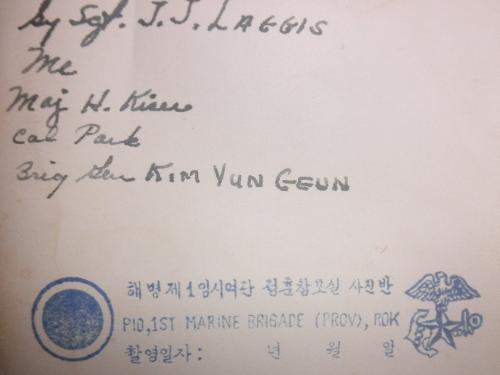 Gy Sgt. J.J. LAGGIS
Me
Maj H. Kiser
Col Park
Brig Gen KIM YUN GEUN
해병제1임시여단 정훈참모실 사진반
PIO, 1ST MARINE BRIGADE (PROV), ROK
촬영일자 : 년 월 일